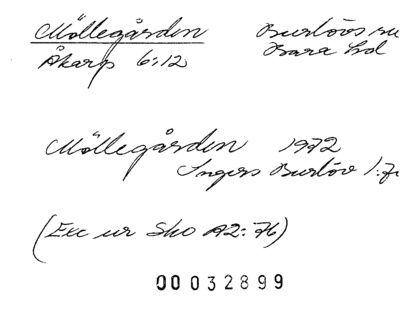 Möllegården Burlövs
Åkarp 6:12 Bara hd
Möllegården 1972
Ingers Burlöv 1:
(Exc ur Sko A2:76)
00032899